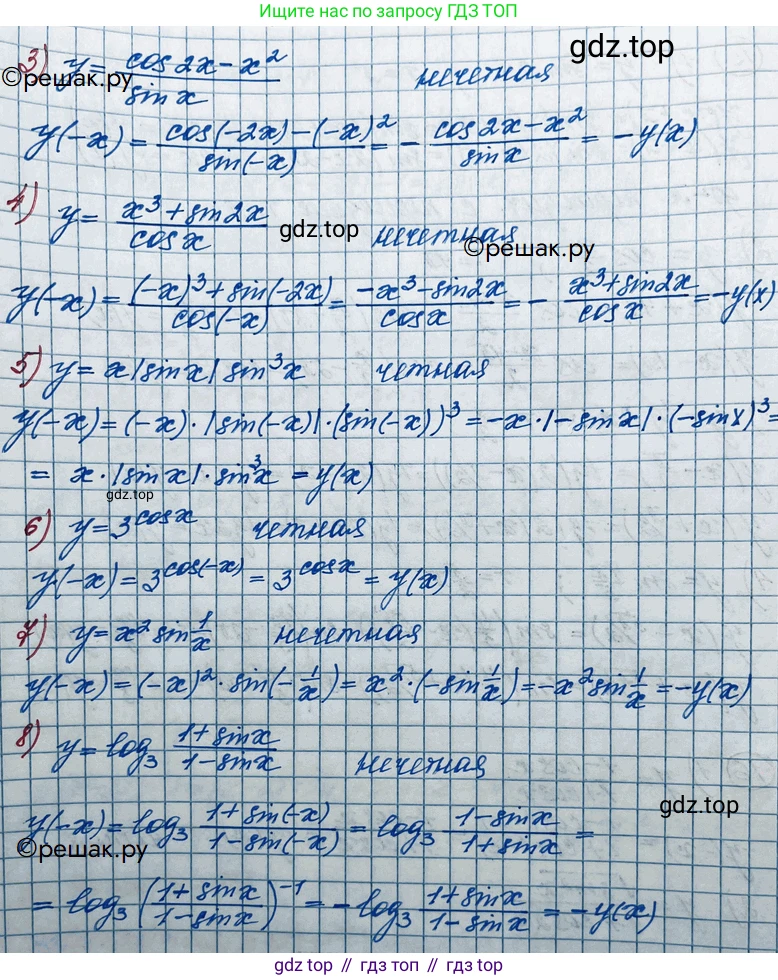 Ищите нас по запросу ГДЗ ТОП
gdz.top
3) y = (cos 2x - x²)/(sin x) нечетная
©решак.ру
y(-x) = (cos(-2x) - (-x)²)/(sin(-x)) = - (cos 2x - x²)/(sin x) = -y(x)
4) y = (x³ + sin 2x)/(cos x) нечетная
gdz.top
©решак.ру
y(-x) = ((-x)³ + sin(-2x))/(cos(-x)) = (-x³ - sin 2x)/(cos x) = - (x³ + sin 2x)/(cos x) = -y(x)
5) y = x|sin x| sin³x четная
y(-x) = (-x)·|sin(-x)|·(sin(-x))³ = -x·|-sin x|·(-sin x)³ =
= x·|sin x|·sin³x = y(x)
gdz.top
6) y = 3^cos x четная
y(-x) = 3^cos(-x) = 3^cos x = y(x)
7) y = x² sin 1/x нечетная
y(-x) = (-x)²·sin(-1/x) = x²·(-sin 1/x) = -x² sin 1/x = -y(x)
8) y = log₃ (1 + sin x)/(1 - sin x) нечетная
gdz.top
y(-x) = log₃ (1 + sin(-x))/(1 - sin(-x)) = log₃ (1 - sin x)/(1 + sin x) =
©решак.ру
= log₃ ((1 + sin x)/(1 - sin x))⁻¹ = - log₃ (1 + sin x)/(1 - sin x) = -y(x)
gdz top // гдз топ // gdz top